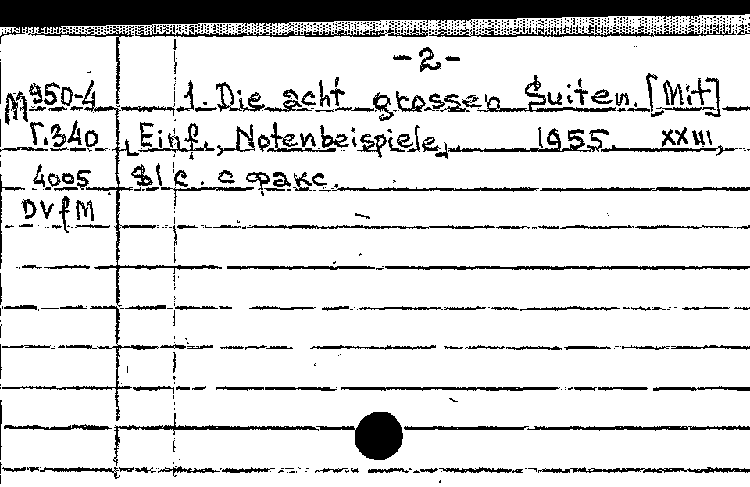 -2-
М950-4 1. Die acht grossen Suiten. [Mit]
Г.340 [Einf., Notenbeispiele]. 1955. XXIII,
4005 81 с. с факс.
DVfM